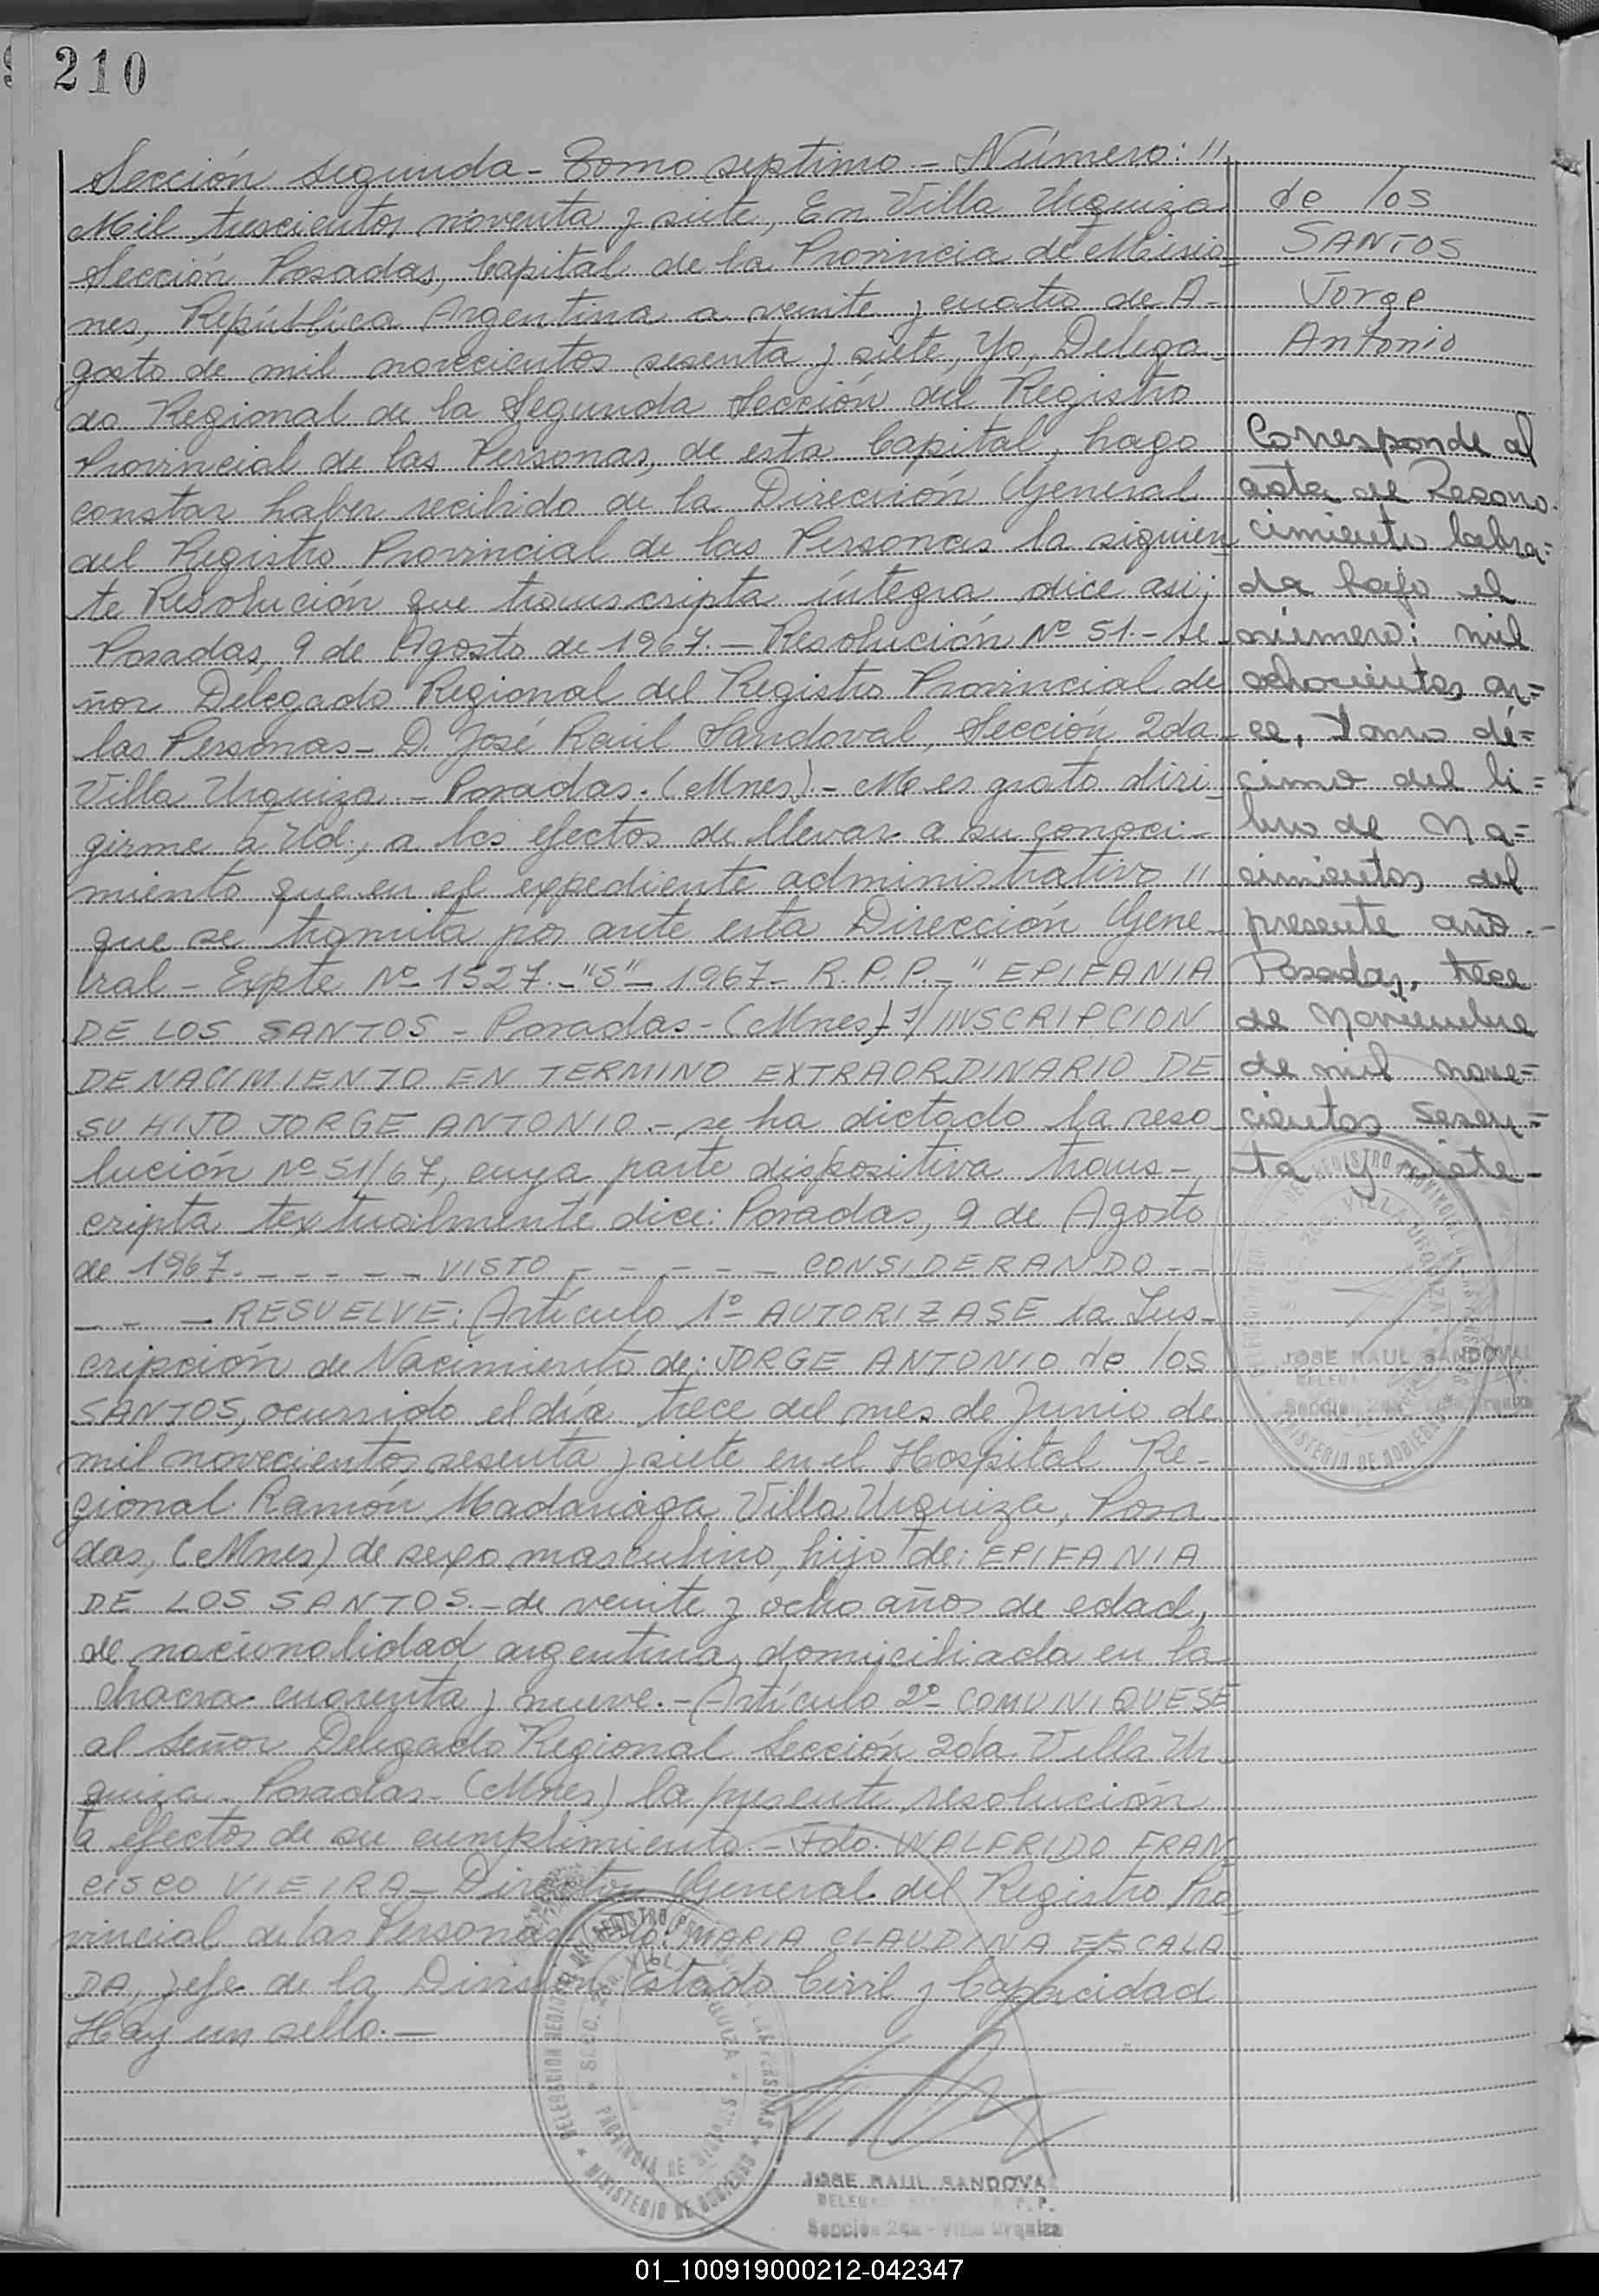 210
Sección segunda - Tomo septimo - Número: "
Mil trescientos noventa y siete, En Villa Urquiza
Sección Posadas, Capital de la Provincia de Misio-
nes, República Argentina a veinte y cuatro de A-
gosto de mil novecientos sesenta y siete, Yo, Delega-
do Regional de la Segunda Sección del Registro
Provincial de las Personas, de esta Capital, hago
constar haber recibido de la Dirección General
del Registro Provincial de las Personas la siguien
te Resolución que transcripta íntegra dice asi;
Posadas, 9 de Agosto de 1967. - Resolución Nº 51. - Se-
ñor Delegado Regional del Registro Provincial de
las Personas - D. José Raúl Sandoval, Sección 2da
Villa Urquiza - Posadas. (Mnes). - Me es grato diri-
girme a Ud., a los efectos de llevar a su conoci-
miento que en el expediente administrativo "
que se tramita por ante esta Dirección Gene-
ral - Expte Nº 1527. - "S" - 1967 - R.P.P. - " EPIFANIA
DE LOS SANTOS - Posadas - (Mnes) - s/ INSCRIPCION
DE NACIMIENTO EN TERMINO EXTRAORDINARIO DE
SU HIJO JORGE ANTONIO. - se ha dictado la reso-
lución Nº 51/67, cuya parte dispositiva trans-
cripta textualmente dice: Posadas, 9 de Agosto
de 1967. - - - - - VISTO - - - - - CONSIDERANDO - -
- - - RESUELVE: Artículo 1º AUTORIZASE la Ins-
cripción de Nacimiento de: JORGE ANTONIO de los
SANTOS, ocurrido el día trece del mes de Junio de
mil novecientos sesenta y siete en el Hospital Re-
gional Ramón Madariaga Villa Urquiza, Posa-
das, (Mnes) de sexo masculino, hijo de: EPIFANIA
DE LOS SANTOS. - de veinte y ocho años de edad,
de nacionalidad argentina, domiciliada en la
chacra cuarenta y nueve. - Artículo 2º COMUNIQUESE
al Señor Delegado Regional Sección 2da. Villa Ur-
quiza - Posadas - (Mnes) la presente resolución
a efectos de su cumplimiento. - Fdo. WALFRIDO FRAN-
CISCO VIEIRA - Director General del Registro Pro-
vincial de las Personas Fdo: MARIA CLAUDINA ESCALA-
DA, Jefe de la División Estado Civil y Capacidad
Hay un sello. -
de los
SANTOS
Jorge
Antonio
Corresponde al
acta de Recono-
cimiento labra=
da bajo el
número: mil
ochocientos on=
ce, Tomo dé=
cimo del li=
bro de Na=
cimientos del
presente año. -
Posadas, trece
de Noviembre
de mil nove=
cientos sesen=
ta y siete -
JOSE RAUL SANDOVAL
Sección 2da - Villa Urquiza
JOSE RAUL SANDOVAL
Sección 2da - Villa Urquiza
01_100919000212-042347